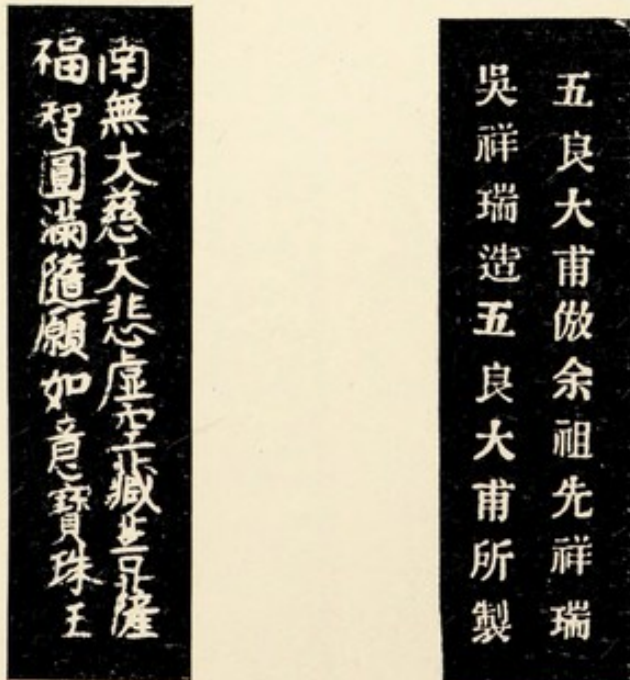 五良大甫倣余祖先祥瑞
吳祥瑞造五良大甫所製
南無大慈大悲虛空藏菩薩
福智圓滿隨願如意寶珠王